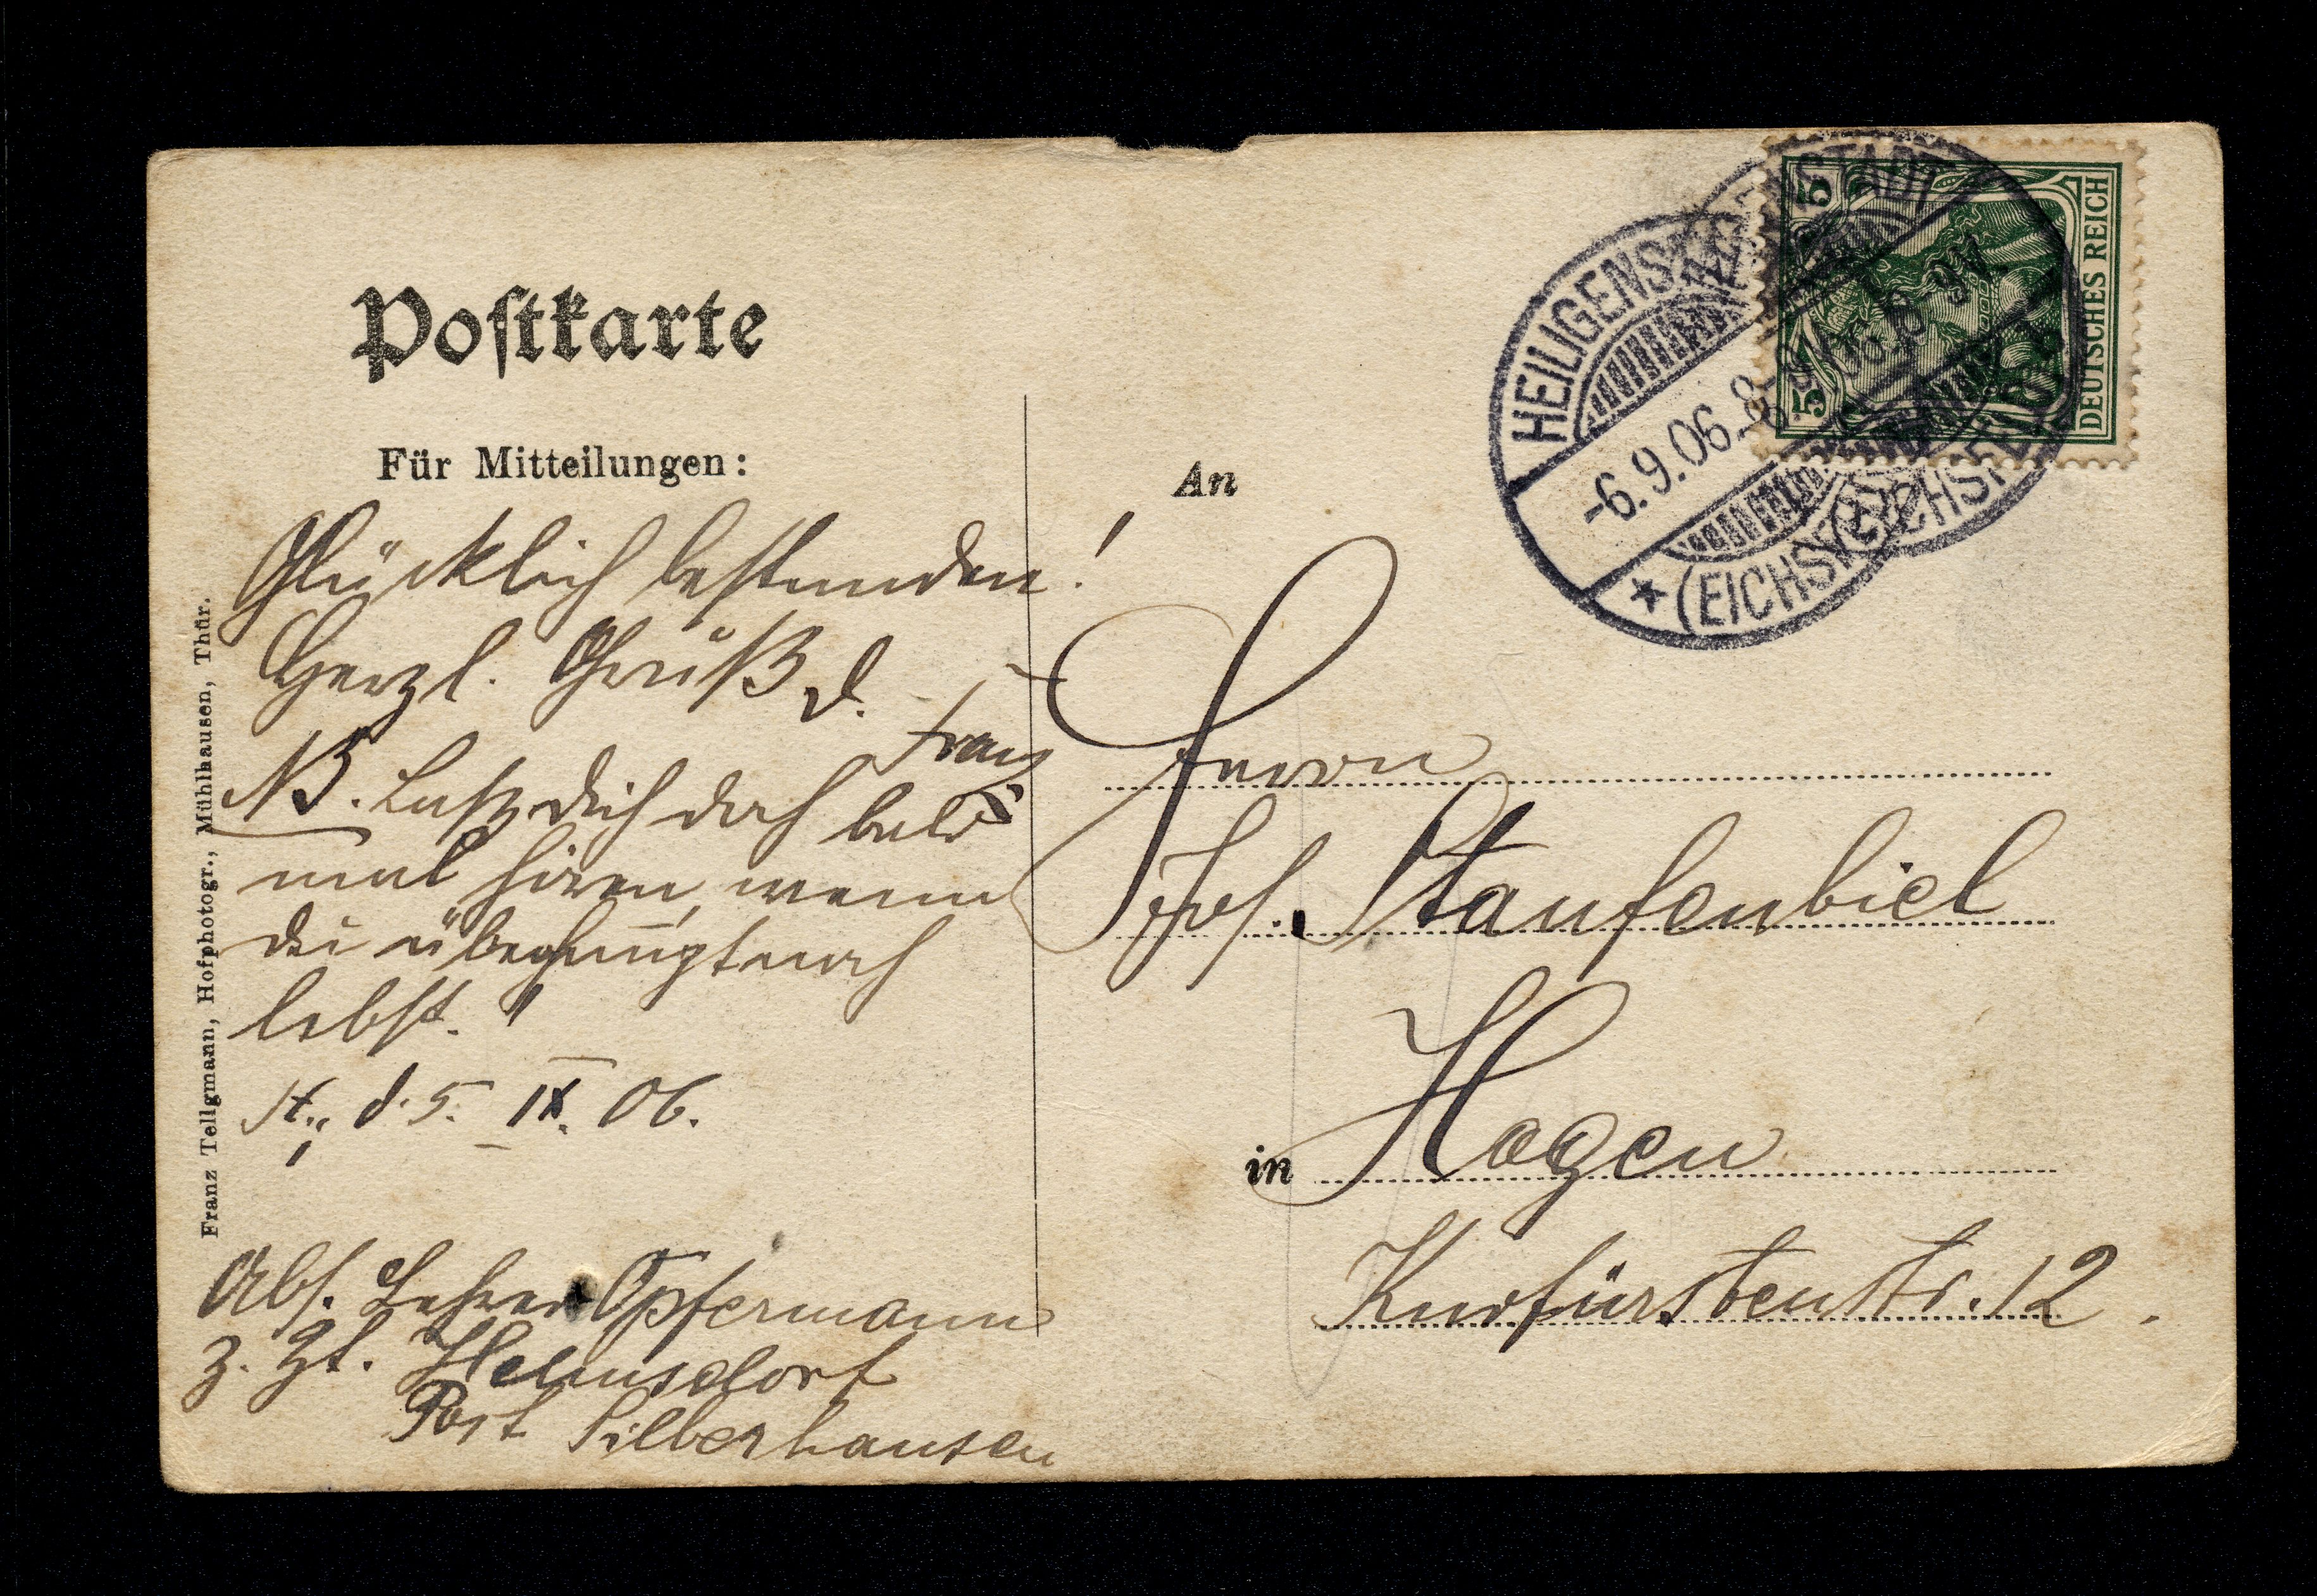 Postkarte
Für Mitteilungen:
Glücklich bestanden!
Herzl. Gruß d.
Franz
NB. Laß dich doch bald
mal hören, wenn
du überhaupt noch
lebst.
H., d. 5. IX. 06.
Abs. Lehrer Opfermann
z. Zt. Helmsdorf
Post Silberhausen
Franz Tellgmann, Hofphotogr., Mühlhausen, Thür.
An
Herrn
Jos. Staufenbiel
in Hagen
Kurfürstenstr. 12.
HEILIGENSTADT
-6.9.06.8-9V.
* (EICHSFELD)
5 5
DEUTSCHES REICH